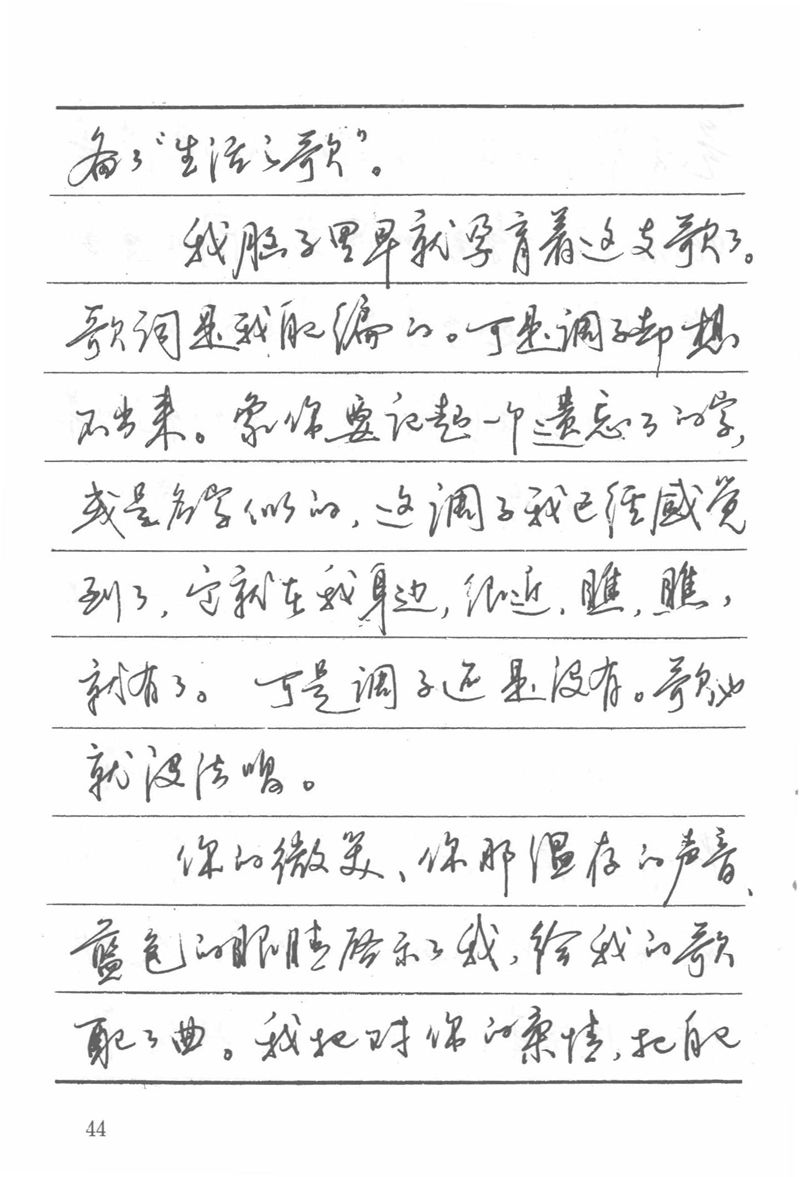 备了“生活之歌”。
我脑子里早就孕育着这支歌了。
歌词是我配编的。可是调子却想
不出来。象你要记起一个遗忘了的字，
或是名字似的，这调子我已经感觉
到了，它就在我身边，很近，瞧，瞧，
就有了。可是调子还是没有。歌也
就没法唱。
你的微笑、你那温存的声音、
蓝色的眼睛启示了我，给我的歌
配了曲。我把对你的柔情，把自己
44